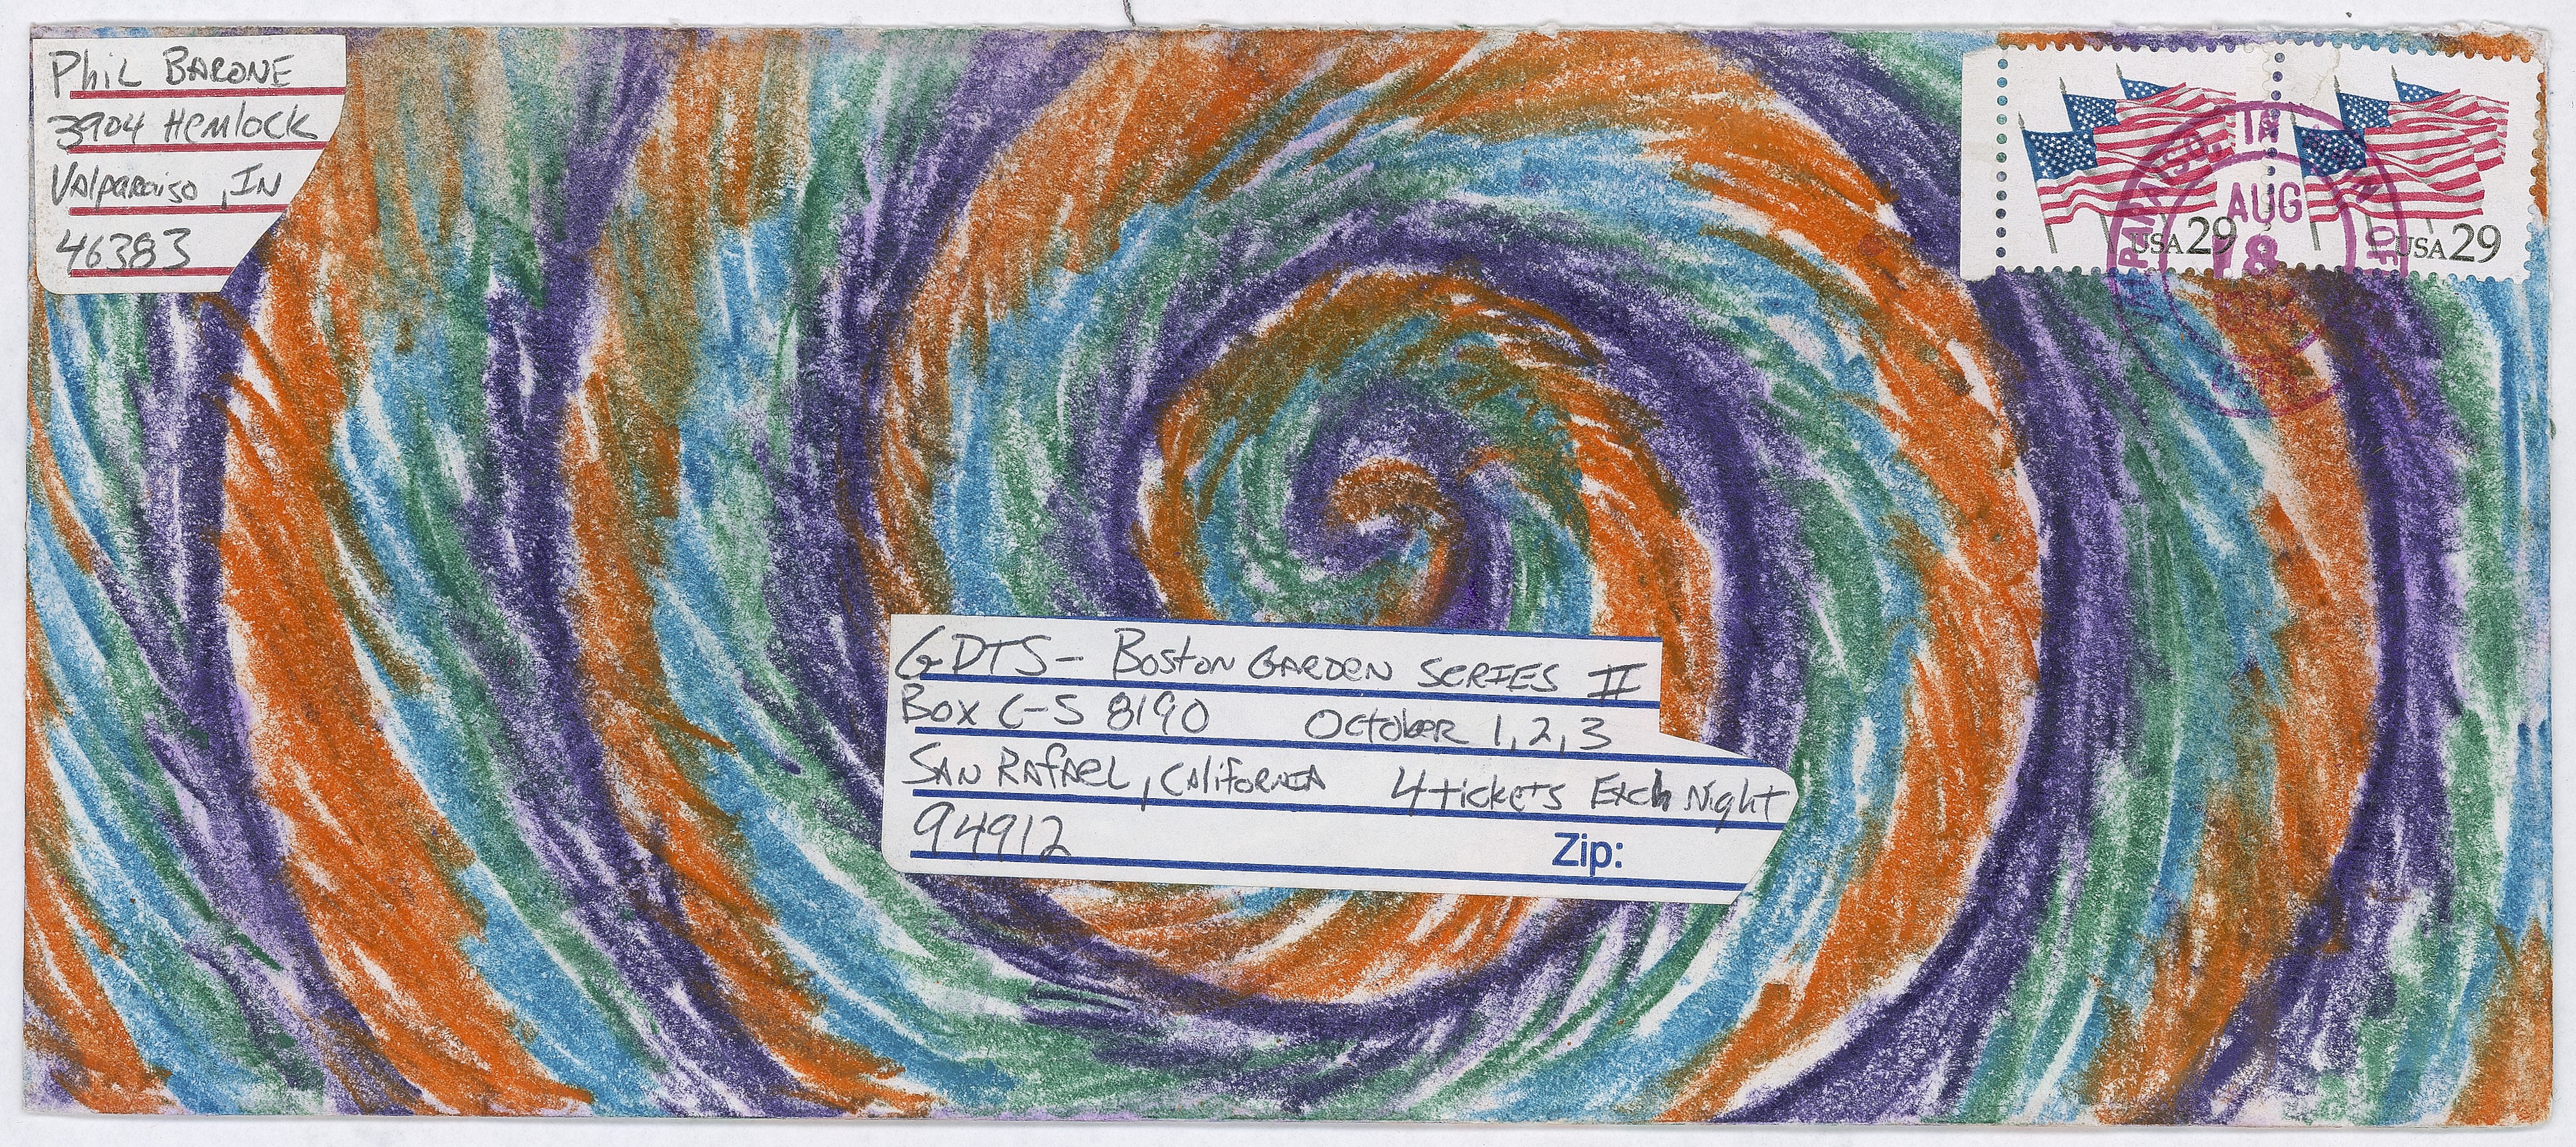 Phil Barone
3904 Hemlock
Valparaiso, IN
46383
USA 29
USA 29
PARAISO, IN
AUG
8
GDTS - Boston Garden Series II
Box C-S 8190 October 1, 2, 3
San Rafael, California 4 tickets Each Night
94912
Zip: